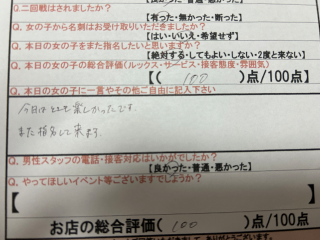 【良かった・普通・悪かった】
Q.二回戦はされましたか?
【有った・無かった・断った】
Q.女の子から名刺はお受け取りいただきましたか?
【はい・いいえ・希望せず】
Q.本日の女の子をまた指名したいと思いますか?
【絶対する・してもよい・しない・2度と来ない】
Q.本日の女の子の総合評価(ルックス・サービス・接客態度・雰囲気)
【( 100 )点/100点】
Q.本日の女の子に一言やその他ご自由に記入下さい
今日はとても楽しかったです。
また指名して来ます。
Q.男性スタッフの電話・接客対応はいかがでしたか?
【良かった・普通・悪かった】
Q.やってほしいイベント等ございますでしょうか?
【 】
お店の総合評価( 100 )点/100点